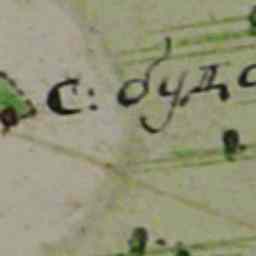 с: буда